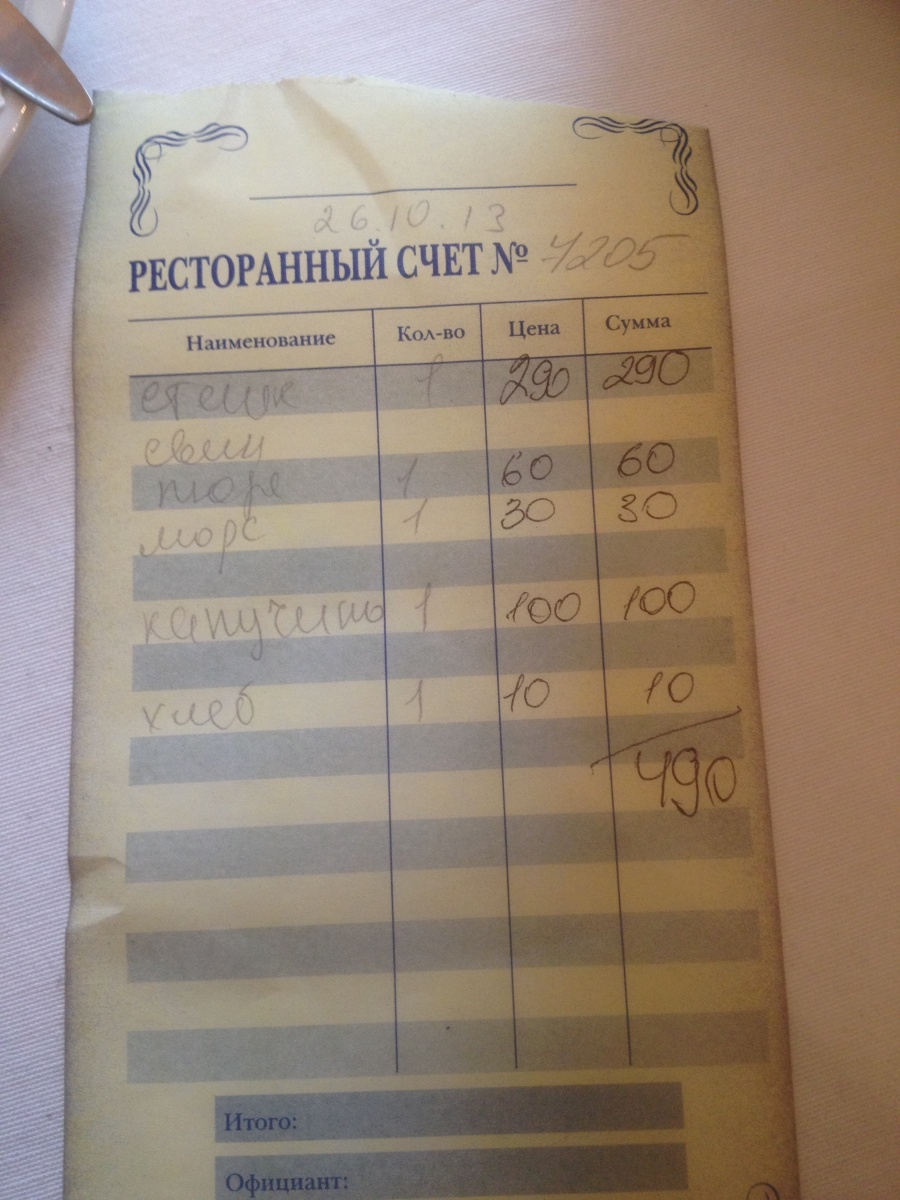 26.10.13
РЕСТОРАННЫЙ СЧЕТ № 4205
Наименование Кол-во Цена Сумма
стейк 1 290 290
свин
пюре 1 60 60
морс 1 30 30
капучино 1 100 100
хлеб 1 10 10
490
Итого:
Официант: